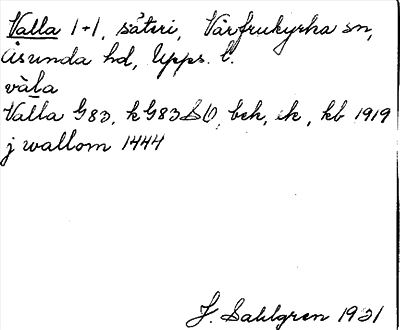 Valla 1+1, säteri, Vårfrukyrka sn,
Åsunda hd, Upps. l.
våla
Valla G83, k G83 &O, bek, ik, kb 1919
j wallom 1444
J. Sahlgren 1921